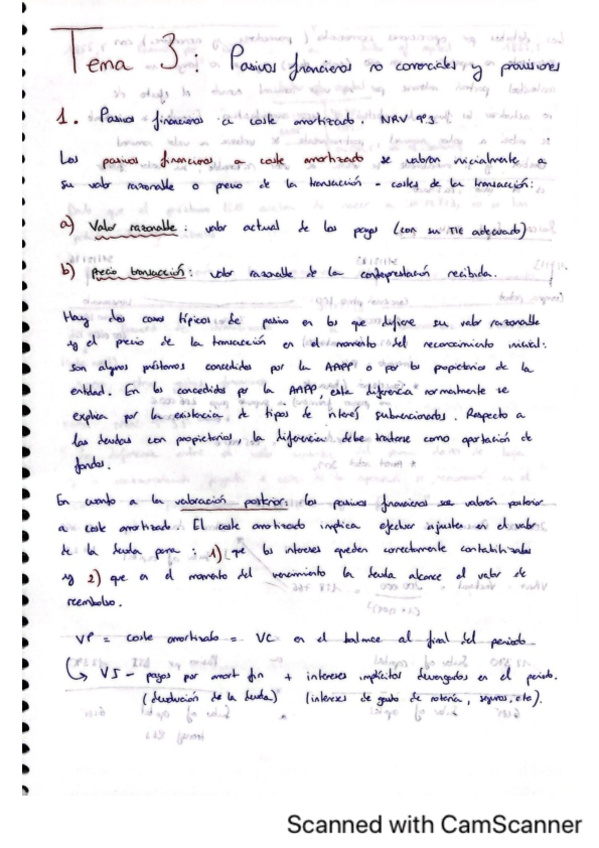 Tema 3: Pasivos financieros no comerciales y provisiones
1. Pasivos financieros a coste amortizado. NRV nº3
Los pasivos financieros a coste amortizado se valoran inicialmente a
su valor razonable o precio de la transacción - costes de la transacción:
a) Valor razonable: valor actual de los pagos (con su TIE adecuado)
b) precio transacción: valor razonable de la contraprestación recibida.
Hay dos casos típicos de pasivo en los que difiere su valor razonable
y el precio de la transacción en el momento del reconocimiento inicial:
son algunos préstamos concedidos por la AAPP o por los propietarios de la
entidad. En los concedidos por la AAPP, esta diferencia normalmente se
explica por la existencia de tipos de interés subvencionados. Respecto a
las deudas con propietarios, la diferencia debe tratarse como aportación de
fondos.
En cuanto a la valoración posterior, los pasivos financieros se valoran posterior
a coste amortizado. El coste amortizado implica efectuar ajustes en el valor
de la deuda para: 1) que los intereses queden correctamente contabilizados
y 2) que en el momento del vencimiento la deuda alcance el valor de
reembolso.
VP = coste amortizado = VC en el balance al final del periodo
↳ VI - pagos por amort fin + intereses implícitos devengados en el periodo.
(devolución de la deuda) (intereses de gasto de notaría, seguros, etc).
Scanned with CamScanner